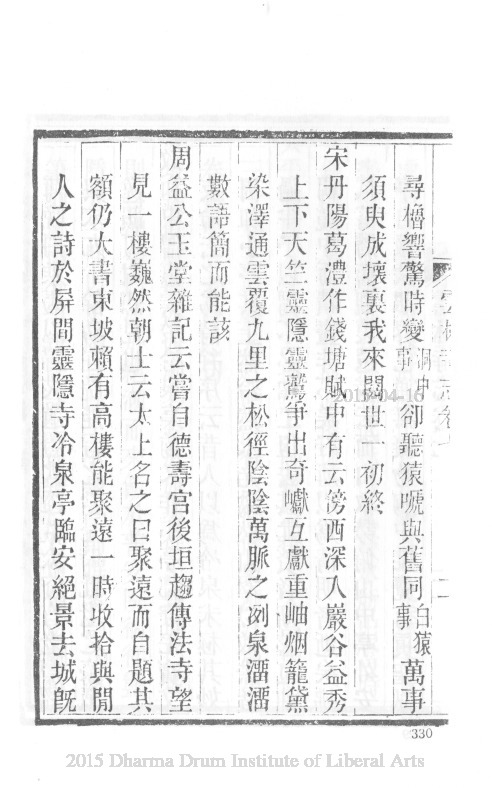 尋櫓響驚時變洞中事卻聽猿啼與舊同白猿事萬事
須臾成壞裏我來閱世一初終
宋丹陽葛澧作錢塘賦中有云傍西深入巖谷益秀
上下天竺靈隱靈鷲爭出奇巘互獻重岫烟籠黛
染澤通雲覆九里之松徑陰陰萬脈之冽泉潘潘
數語簡而能該
周益公玉堂雜記云嘗自德壽宮後垣趨傳法寺望
見一樓巍然朝士云太上名之曰聚遠而自題其
額仍大書東坡賴有高樓能聚遠一時收拾與閒
人之詩於屏間靈隱寺冷泉亭臨安絕景去城旣
330
2015-04-16
2015 Dharma Drum Institute of Liberal Arts